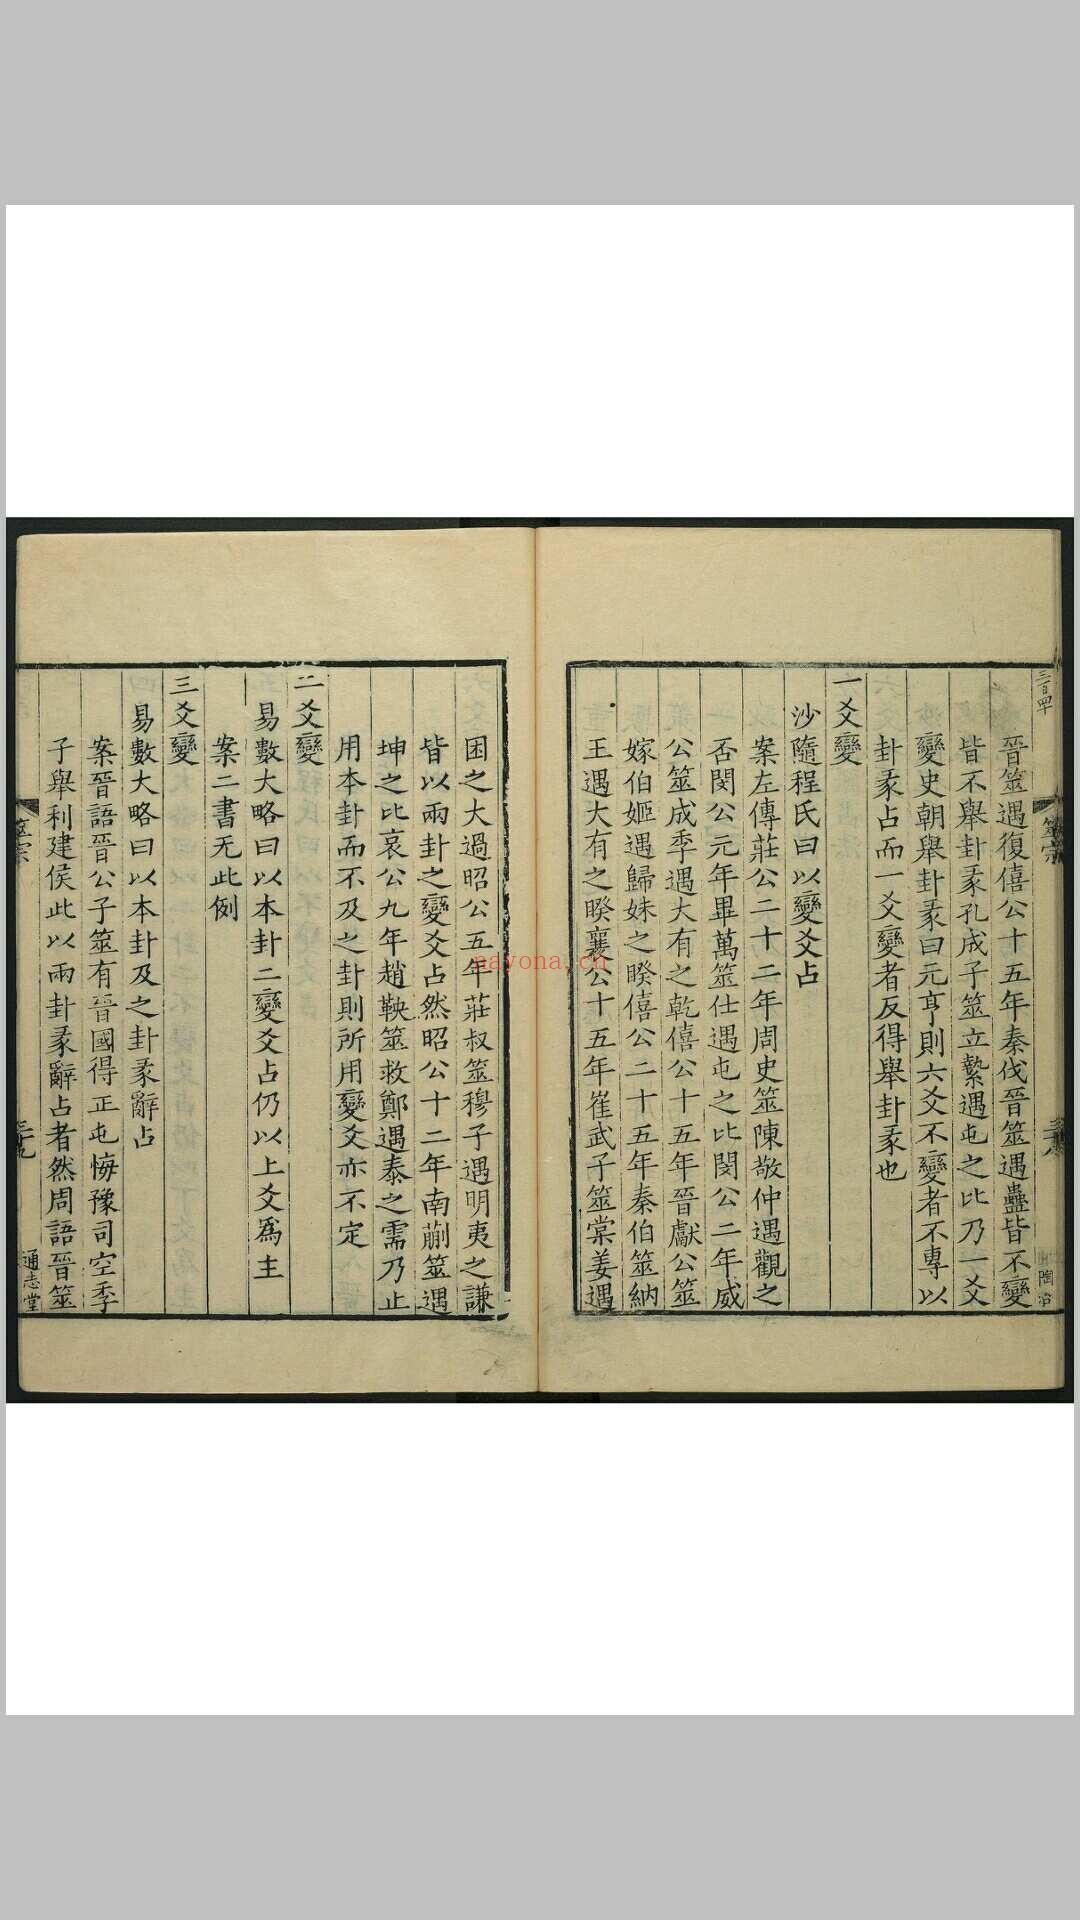 三百四十
筮宗
三十八
晉筮遇復僖公十五年秦伐晉筮遇蠱皆不變
皆不舉卦彖孔成子筮立縶遇屯之比乃一爻
變史朝舉卦彖曰元亨則六爻不變者不專以
卦彖占而一爻變者反得舉卦彖也
一爻變
沙隨程氏曰以變爻占
案左傳莊公二十二年周史筮陳敬仲遇觀之
否閔公元年畢萬筮仕遇屯之比閔公二年威
公筮成季遇大有之乾僖公十五年晉獻公筮
嫁伯姬遇歸妹之睽僖公二十五年秦伯筮納
王遇大有之睽襄公十五年崔武子筮棠姜遇
困之大過昭公五年莊叔筮穆子遇明夷之謙
皆以兩卦之變爻占然昭公十二年南蒯筮遇
坤之比哀公九年趙鞅筮救鄭遇泰之需乃止
用本卦而不及之卦則所用變爻亦不定
二爻變
易數大略曰以本卦二變爻占仍以上爻爲主
案二書无此例
三爻變
易數大略曰以本卦及之卦彖辭占
案晉語晉公子筮有晉國得正屯悔豫司空季
子舉利建侯此以兩卦彖辭占者然周語晉筮
筮宗
三十九
通志堂
nayona.cn